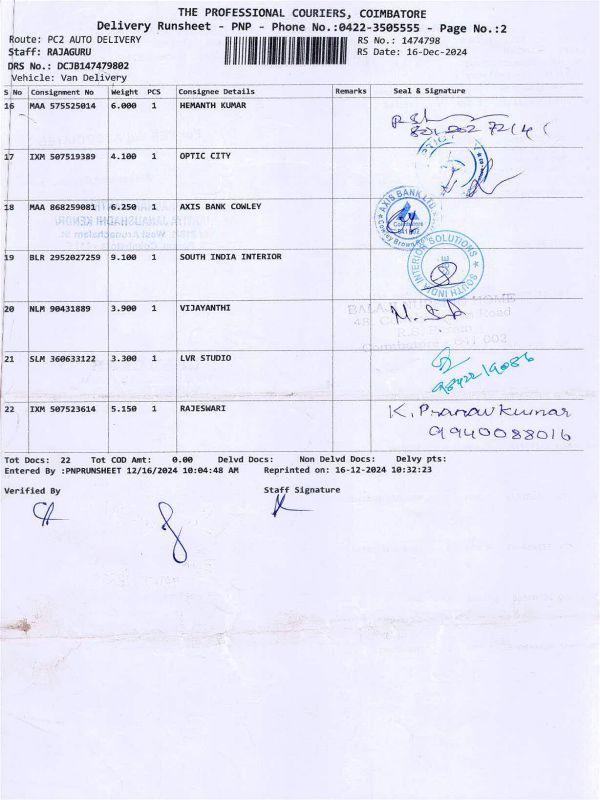 THE PROFESSIONAL COURIERS, COIMBATORE
Delivery Runsheet - PNP - Phone No.:0422-3505555 - Page No.:2
Route: PC2 AUTO DELIVERY
RS No.: 1474798
Staff: RAJAGURU
RS Date: 16-Dec-2024
DRS No.: DCJB147479802
Vehicle: Van Delivery
S No Consignment No Weight PCS Consignee Details Remarks Seal & Signature
16 MAA 575525014 6.000 1 HEMANTH KUMAR
17 IXM 507519389 4.100 1 OPTIC CITY
18 MAA 868259081 6.250 1 AXIS BANK COWLEY
AXIS BANK LTD
Coimbatore
641 002
19 BLR 2952027259 9.100 1 SOUTH INDIA INTERIOR
SOUTH INDIA INTERIOR SOLUTIONS
20 NLM 90431889 3.900 1 VIJAYANTHI
21 SLM 360633122 3.300 1 LVR STUDIO
22 IXM 507523614 5.150 1 RAJESWARI
K. Pranav kumar
9940088016
Tot Docs: 22 Tot COD Amt: 0.00 Delvd Docs: Non Delvd Docs: Delvy pts:
Entered By :PNPRUNSHEET 12/16/2024 10:04:48 AM Reprinted on: 16-12-2024 10:32:23
Verified By Staff Signature